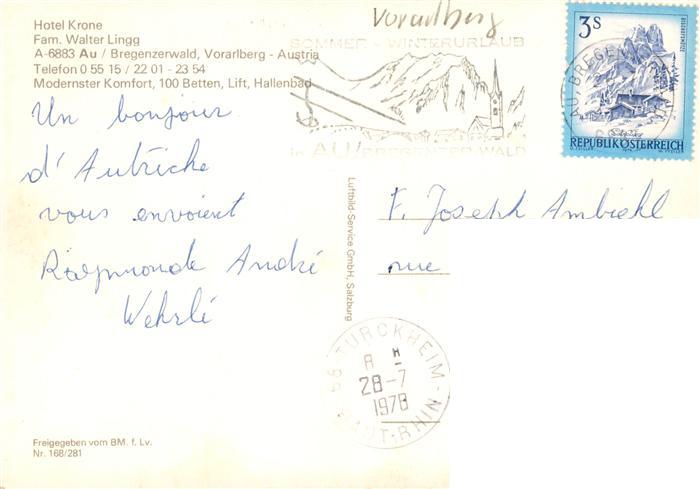 Vorarlberg
Hotel Krone
Fam. Walter Lingg
A-6883 Au / Bregenzerwald, Vorarlberg - Austria
Telefon 0 55 15 / 22 01 - 23 54
Modernster Komfort, 100 Betten, Lift, Hallenbad
SOMMER - WINTERURLAUB
in AU/BREGENZER WALD
3S
REPUBLIK ÖSTERREICH
AU BREGENZ
Un bonjour
d'Autriche
vous envoient
Raymonde André
Wehrlé
Luftbild-Service GmbH, Salzburg
F. Joseph Ambiehl
rue
68 TURCKHEIM
8 H
28-7
1978
HAUT-RHIN
Freigegeben vom BM. f. Lv.
Nr. 168/281